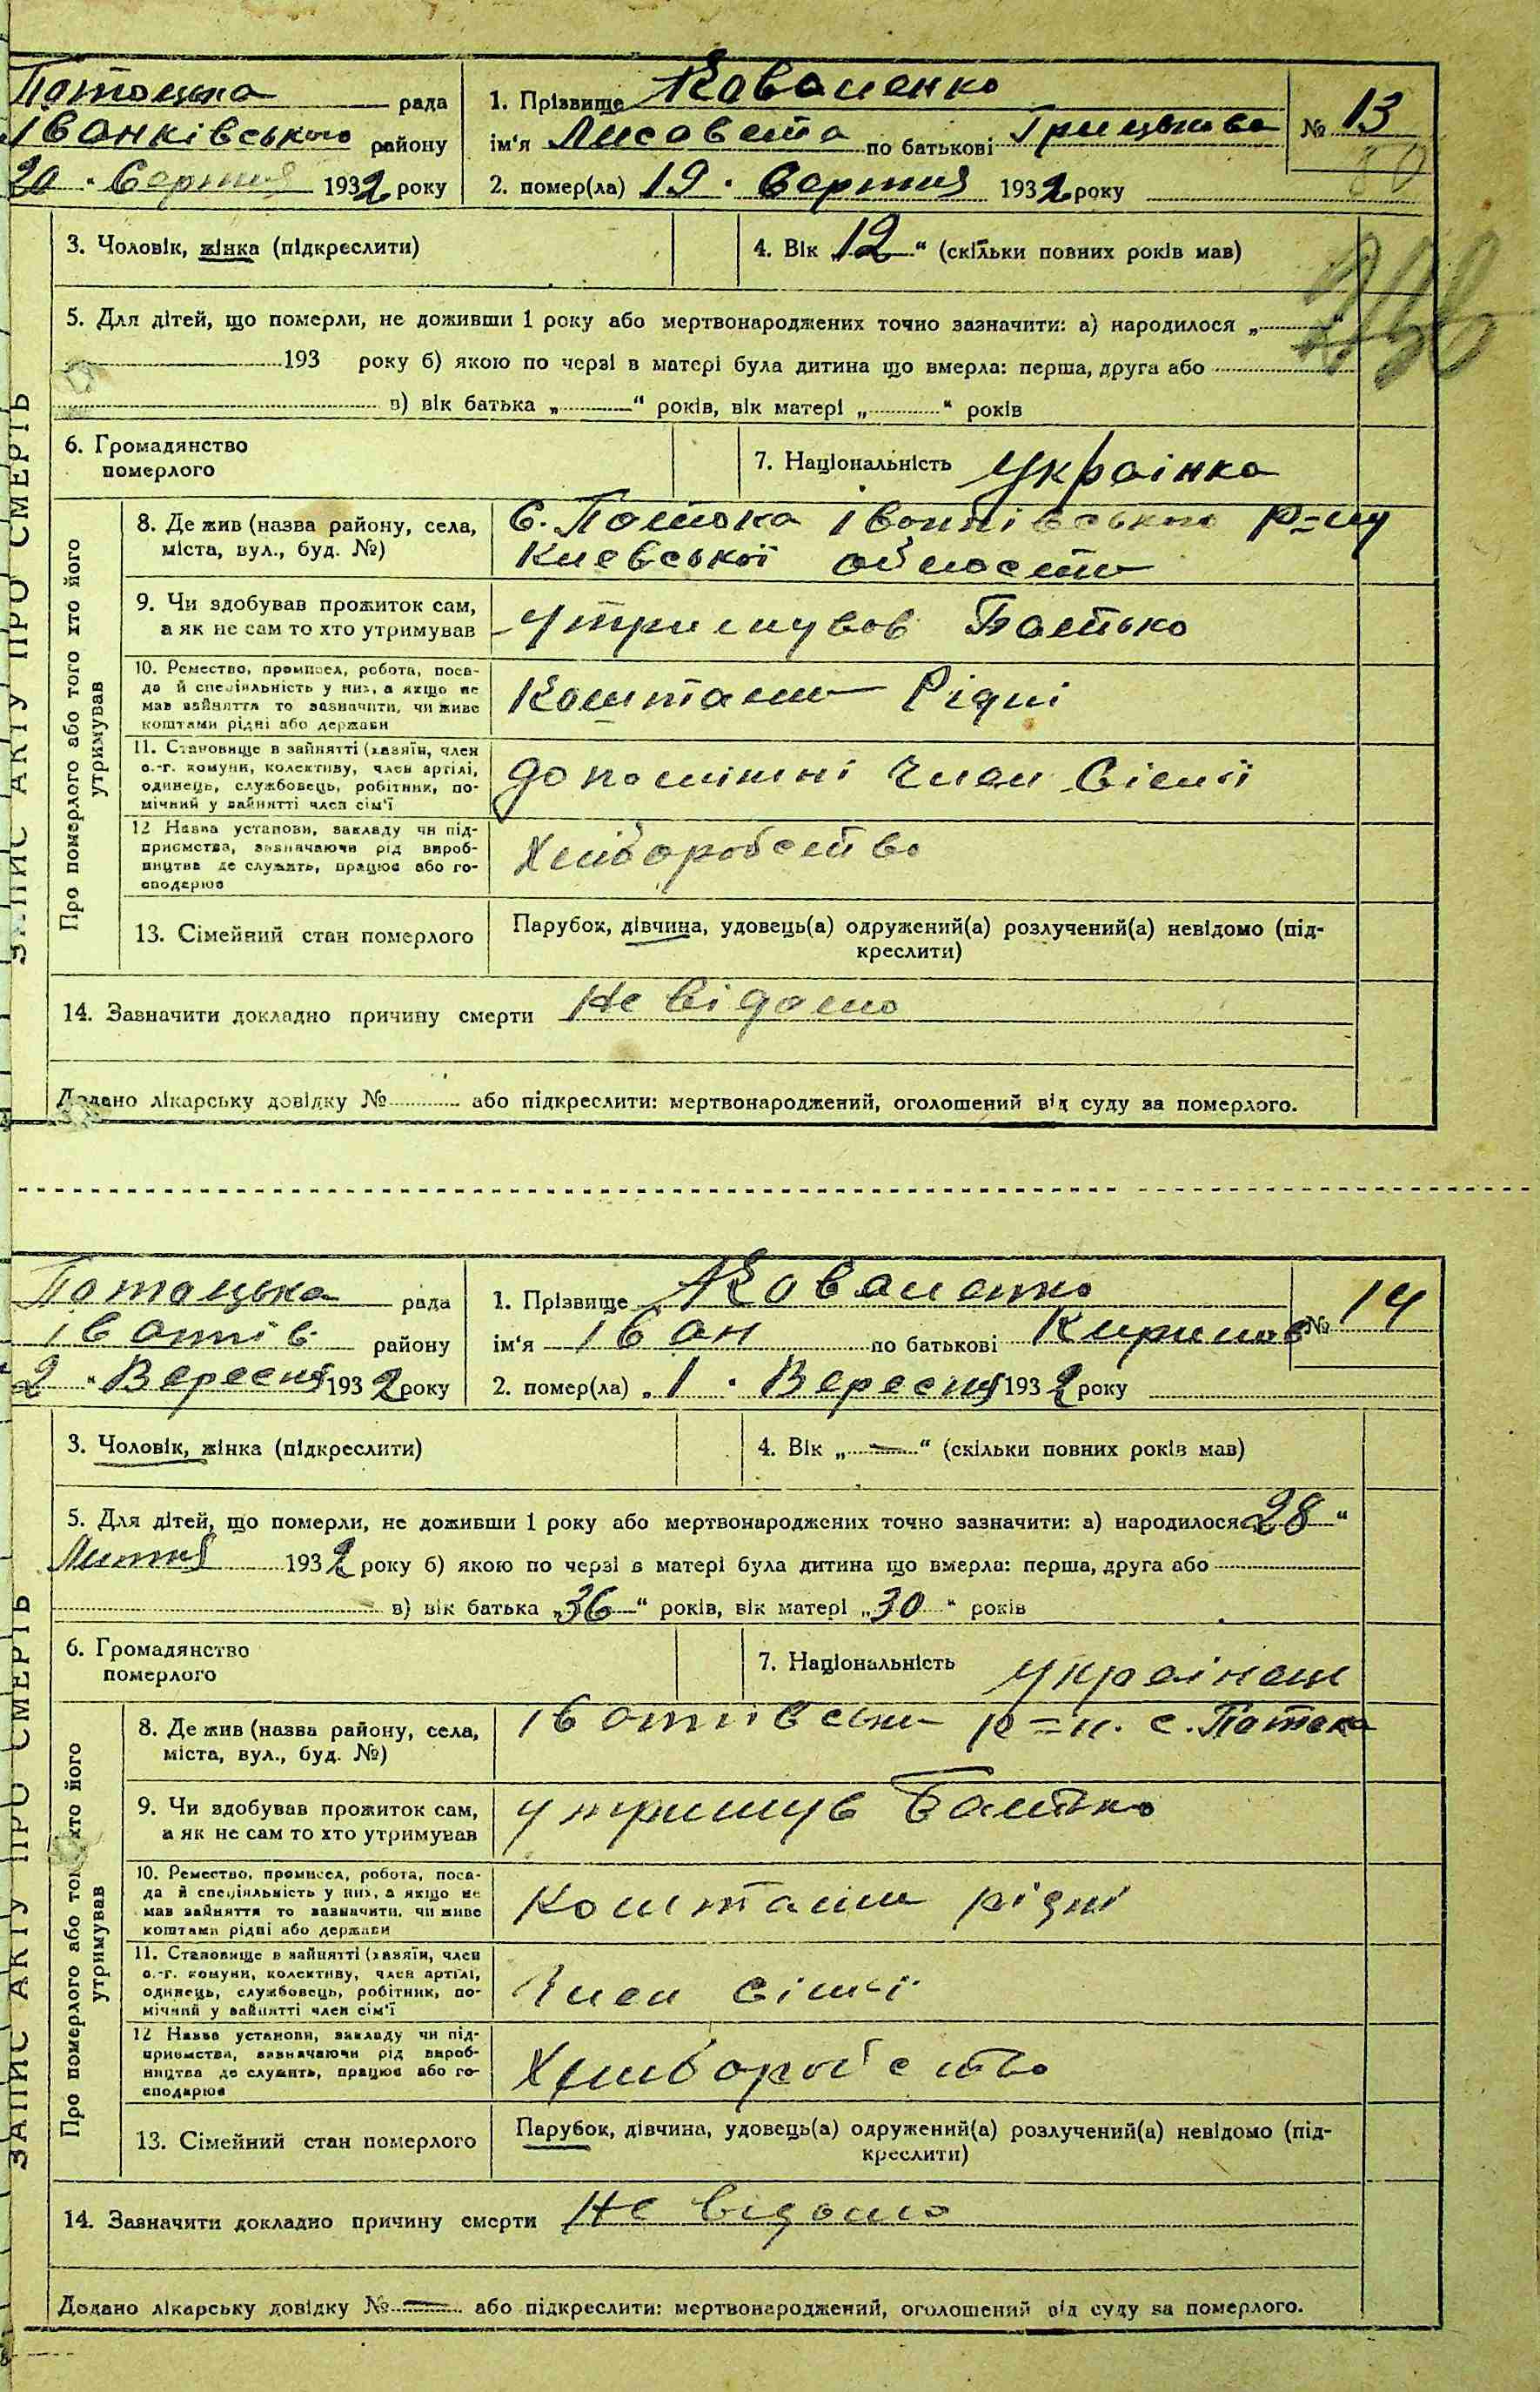 ЗАПИС АКТУ ПРО СМЕРТЬ
Потоцька рада
Іванківського району
20 Серпня 1932 року
1. Прізвище Коваленко
ім'я Лисавета по батькові Грицькова
№ 13
80
2. помер(ла) 19. Серпня 1932 року
3. Чоловік, жінка (підкреслити)
4. Вік 12 “ (скільки повних років мав)
5. Для дітей, що померли, не доживши 1 року або мертвонароджених точно зазначити: а) народилося „ “
193 року б) якою по черзі в матері була дитина що вмерла: перша, друга або
в) вік батька „ “ років, вік матері „ “ років
6. Громадянство
померлого
7. Національність Українка
Про померлого або того хто його
утримував
8. Де жив (назва району, села,
міста, вул., буд. №)
С. Потока Іванківського р=ну
Киевської области
9. Чи здобував прожиток сам,
а як не сам то хто утримував
Утримував Батько
10. Ремество, промисел, робота, поса-
да й спеціяльність у них, а якщо не
мав зайняття то зазначити, чи живе
коштами рідні або держави
Коштами Рідні
11. Становище в зайнятті (хазяїн, член
с.-г. комуни, колективу, член артілі,
одинець, службовець, робітник, по-
мічний у зайнятті член сім'ї
допоміжні член Сімї
12 Назва установи, закладу чи під-
приємства, зазначаючи рід вироб-
ництва де служить, працює або го-
сподарює
Хліборобство
13. Сімейний стан померлого
Парубок, дівчина, удовець(а) одружений(а) розлучений(а) невідомо (під-
креслити)
14. Зазначити докладно причину смерти Не відомо
Додано лікарську довідку № або підкреслити: мертвонароджений, оголошений від суду за померлого.
ЗАПИС АКТУ ПРО СМЕРТЬ
Потоцька рада
Іванків району
2 „ Вересня 1932 року
1. Прізвище Коваленко
ім'я Іван по батькові Кирилов
№ 14
2. помер(ла) „ 1 . Вересня 1932 року
3. Чоловік, жінка (підкреслити)
4. Вік „ — “ (скільки повних років мав)
5. Для дітей, що померли, не доживши 1 року або мертвонароджених точно зазначити: а) народилося 28 “
Липня 1932 року б) якою по черзі в матері була дитина що вмерла: перша, друга або
в) вік батька „36“ років, вік матері „30“ років
6. Громадянство
померлого
7. Національність Українец
Про померлого або того хто його
утримував
8. Де жив (назва району, села,
міста, вул., буд. №)
Іванківськи р=н. с. Потока
9. Чи здобував прожиток сам,
а як не сам то хто утримував
утримув Батько
10. Ремество, промисел, робота, поса-
да й спеціяльність у них, а якщо не
мав зайняття то зазначити, чи живе
коштами рідні або держави
Коштами рідні
11. Становище в зайнятті (хазяїн, член
с.-г. комуни, колективу, член артілі,
одинець, службовець, робітник, по-
мічний у зайнятті член сім'ї
Член сімї
12 Назва установи, закладу чи під-
приємства, зазначаючи рід вироб-
ництва де служить, працює або го-
сподарює
Хлиборобство
13. Сімейний стан померлого
Парубок, дівчина, удовець(а) одружений(а) розлучений(а) невідомо (під-
креслити)
14. Зазначити докладно причину смерти Не відомо
Додано лікарську довідку № — або підкреслити: мертвонароджений, оголошений від суду за померлого.